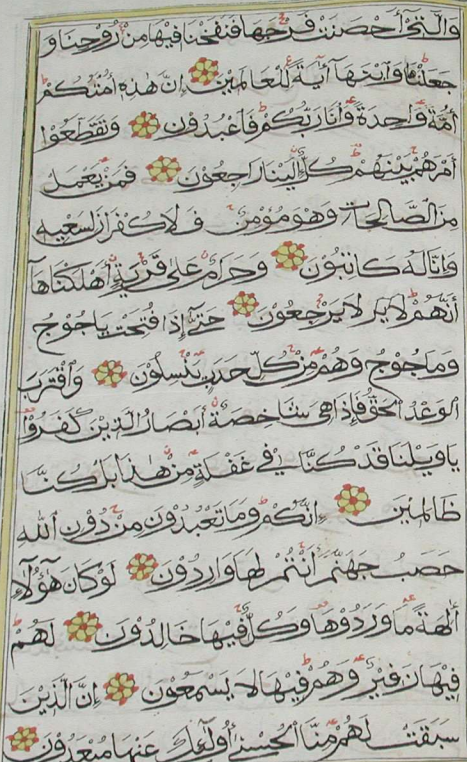 وَالَّتِي أَحْصَنَتْ فَرْجَهَا فَنَفَخْنَا فِيهَا مِنْ رُوحِنَا وَ
جَعَلْنَاهَا وَابْنَهَا آيَةً لِلْعَالَمِينَ إِنَّ هَذِهِ أُمَّتُكُمْ
أُمَّةً وَاحِدَةً وَأَنَا رَبُّكُمْ فَاعْبُدُونِ وَتَقَطَّعُوا
أَمْرَهُمْ بَيْنَهُمْ كُلٌّ إِلَيْنَا رَاجِعُونَ فَمَنْ يَعْمَلْ
مِنَ الصَّالِحَاتِ وَهُوَ مُؤْمِنٌ فَلَا كُفْرَانَ لِسَعْيِهِ
وَإِنَّا لَهُ كَاتِبُونَ وَحَرَامٌ عَلَى قَرْيَةٍ أَهْلَكْنَاهَا
أَنَّهُمْ لَا يَرْجِعُونَ حَتَّى إِذَا فُتِحَتْ يَاجُوجُ
وَمَاجُوجُ وَهُمْ مِنْ كُلِّ حَدَبٍ يَنْسِلُونَ وَاقْتَرَبَ
الْوَعْدُ الْحَقُّ فَإِذَا هِيَ شَاخِصَةٌ أَبْصَارُ الَّذِينَ كَفَرُوا
يَا وَيْلَنَا قَدْ كُنَّا فِي غَفْلَةٍ مِنْ هَذَا بَلْ كُنَّا
ظَالِمِينَ إِنَّكُمْ وَمَا تَعْبُدُونَ مِنْ دُونِ اللَّهِ
حَصَبُ جَهَنَّمَ أَنْتُمْ لَهَا وَارِدُونَ لَوْ كَانَ هَؤُلَاءِ
آلِهَةً مَا وَرَدُوهَا وَكُلٌّ فِيهَا خَالِدُونَ لَهُمْ
فِيهَا زَفِيرٌ وَهُمْ فِيهَا لَا يَسْمَعُونَ إِنَّ الَّذِينَ
سَبَقَتْ لَهُمْ مِنَّا الْحُسْنَى أُولَئِكَ عَنْهَا مُبْعَدُونَ